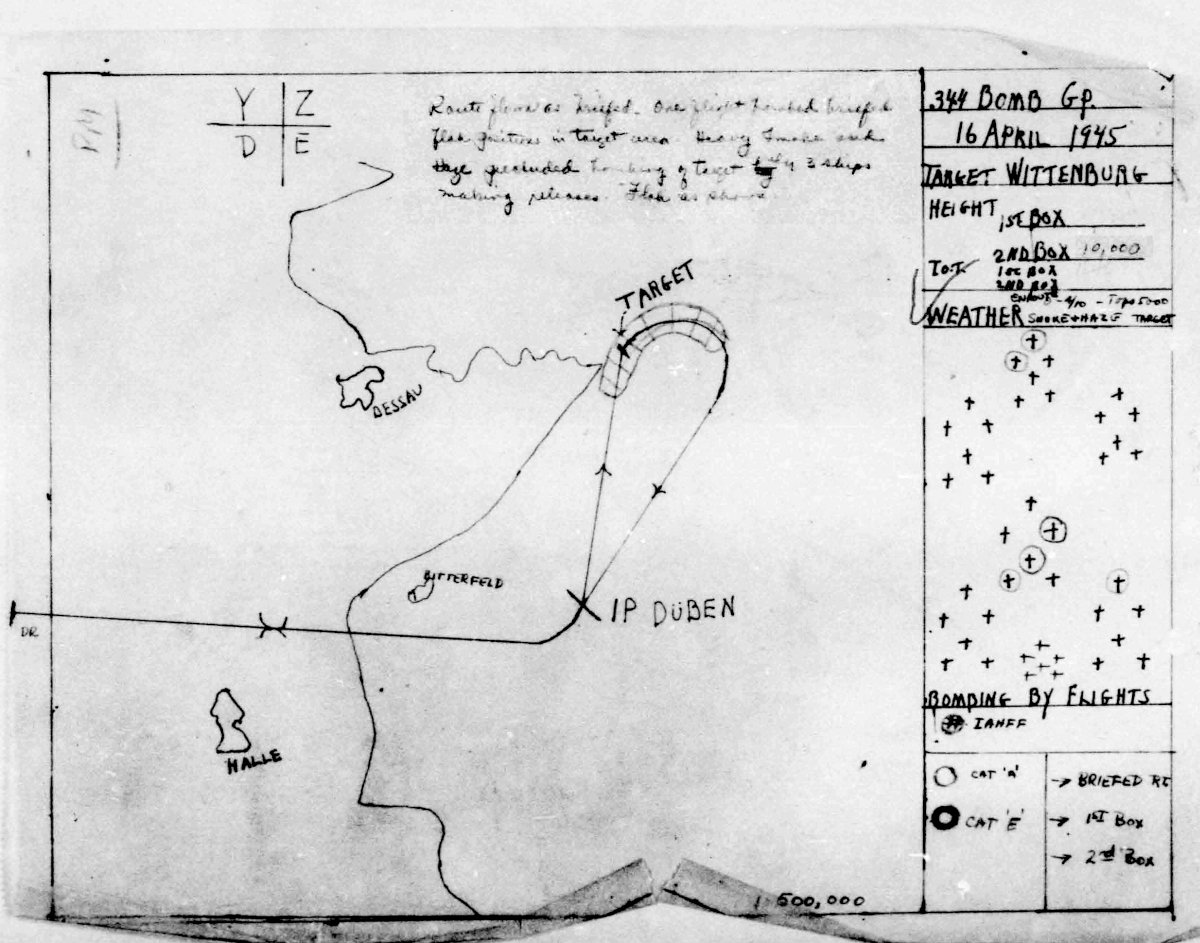 PM
Y Z
D E
Route flown as briefed. One flight bombed briefed
flak positions in target area. Heavy Smoke and
Haze precluded bombing of target by 3 ships
making releases. Flak as shown.
TARGET
DESSAU
BITTERFELD
IP DÜBEN
DR
HALLE
1 500,000
344 BOMB GP.
16 APRIL 1945
TARGET WITTENBURG
HEIGHT 1ST BOX
2ND BOX 10,000
T.O.T. 1ST BOX
2ND BOX
WEATHER ENROUTE - 4/10 - TOPS 5000
SMOKE + HAZE TARGET
BOMBING BY FLIGHTS
IAHFF
CAT 'A'
CAT 'E'
→ BRIEFED RT
→ 1ST BOX
→ 2nd BOX